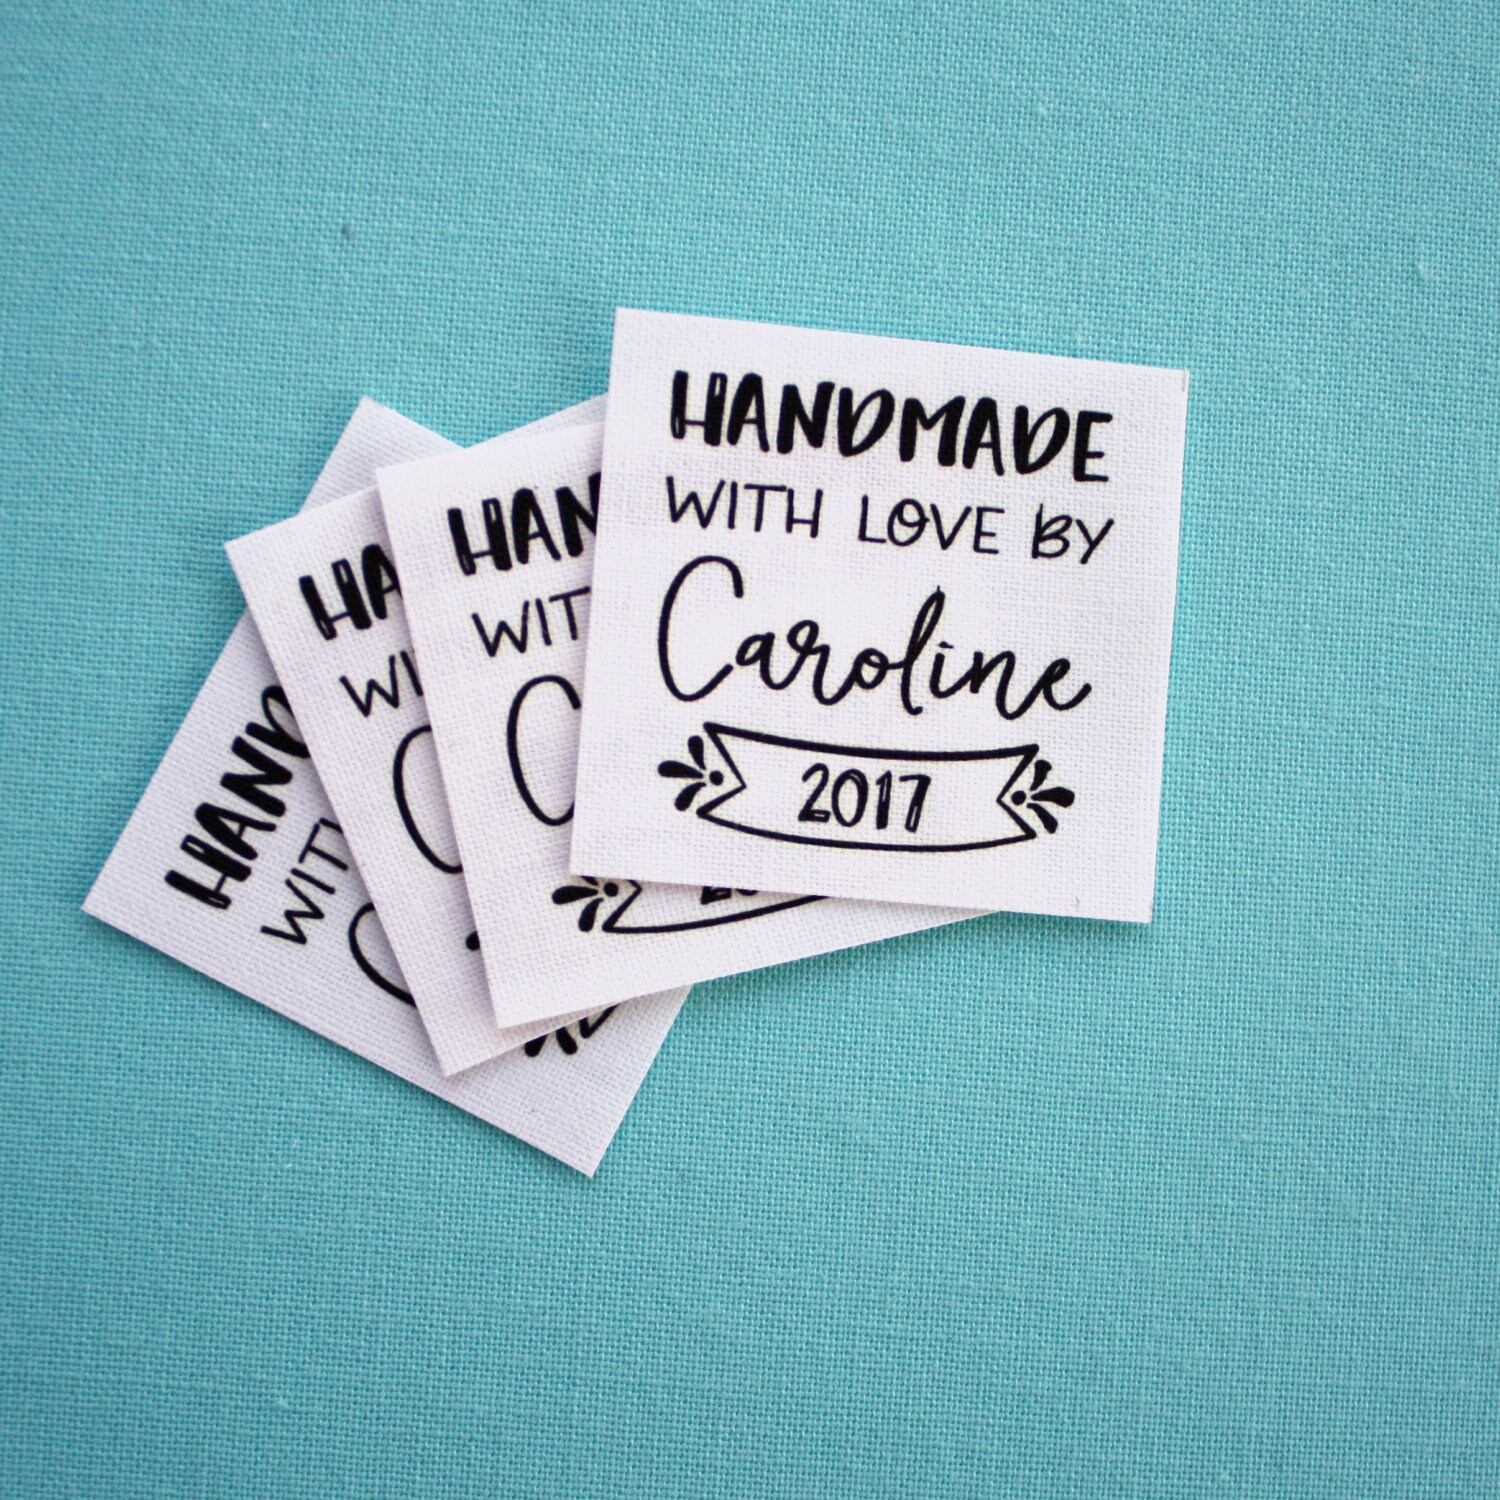 HANDMADE
WITH LOVE BY
Caroline
2017
HAN
WIT
C
HA
WI
C
HAND
WITH
C